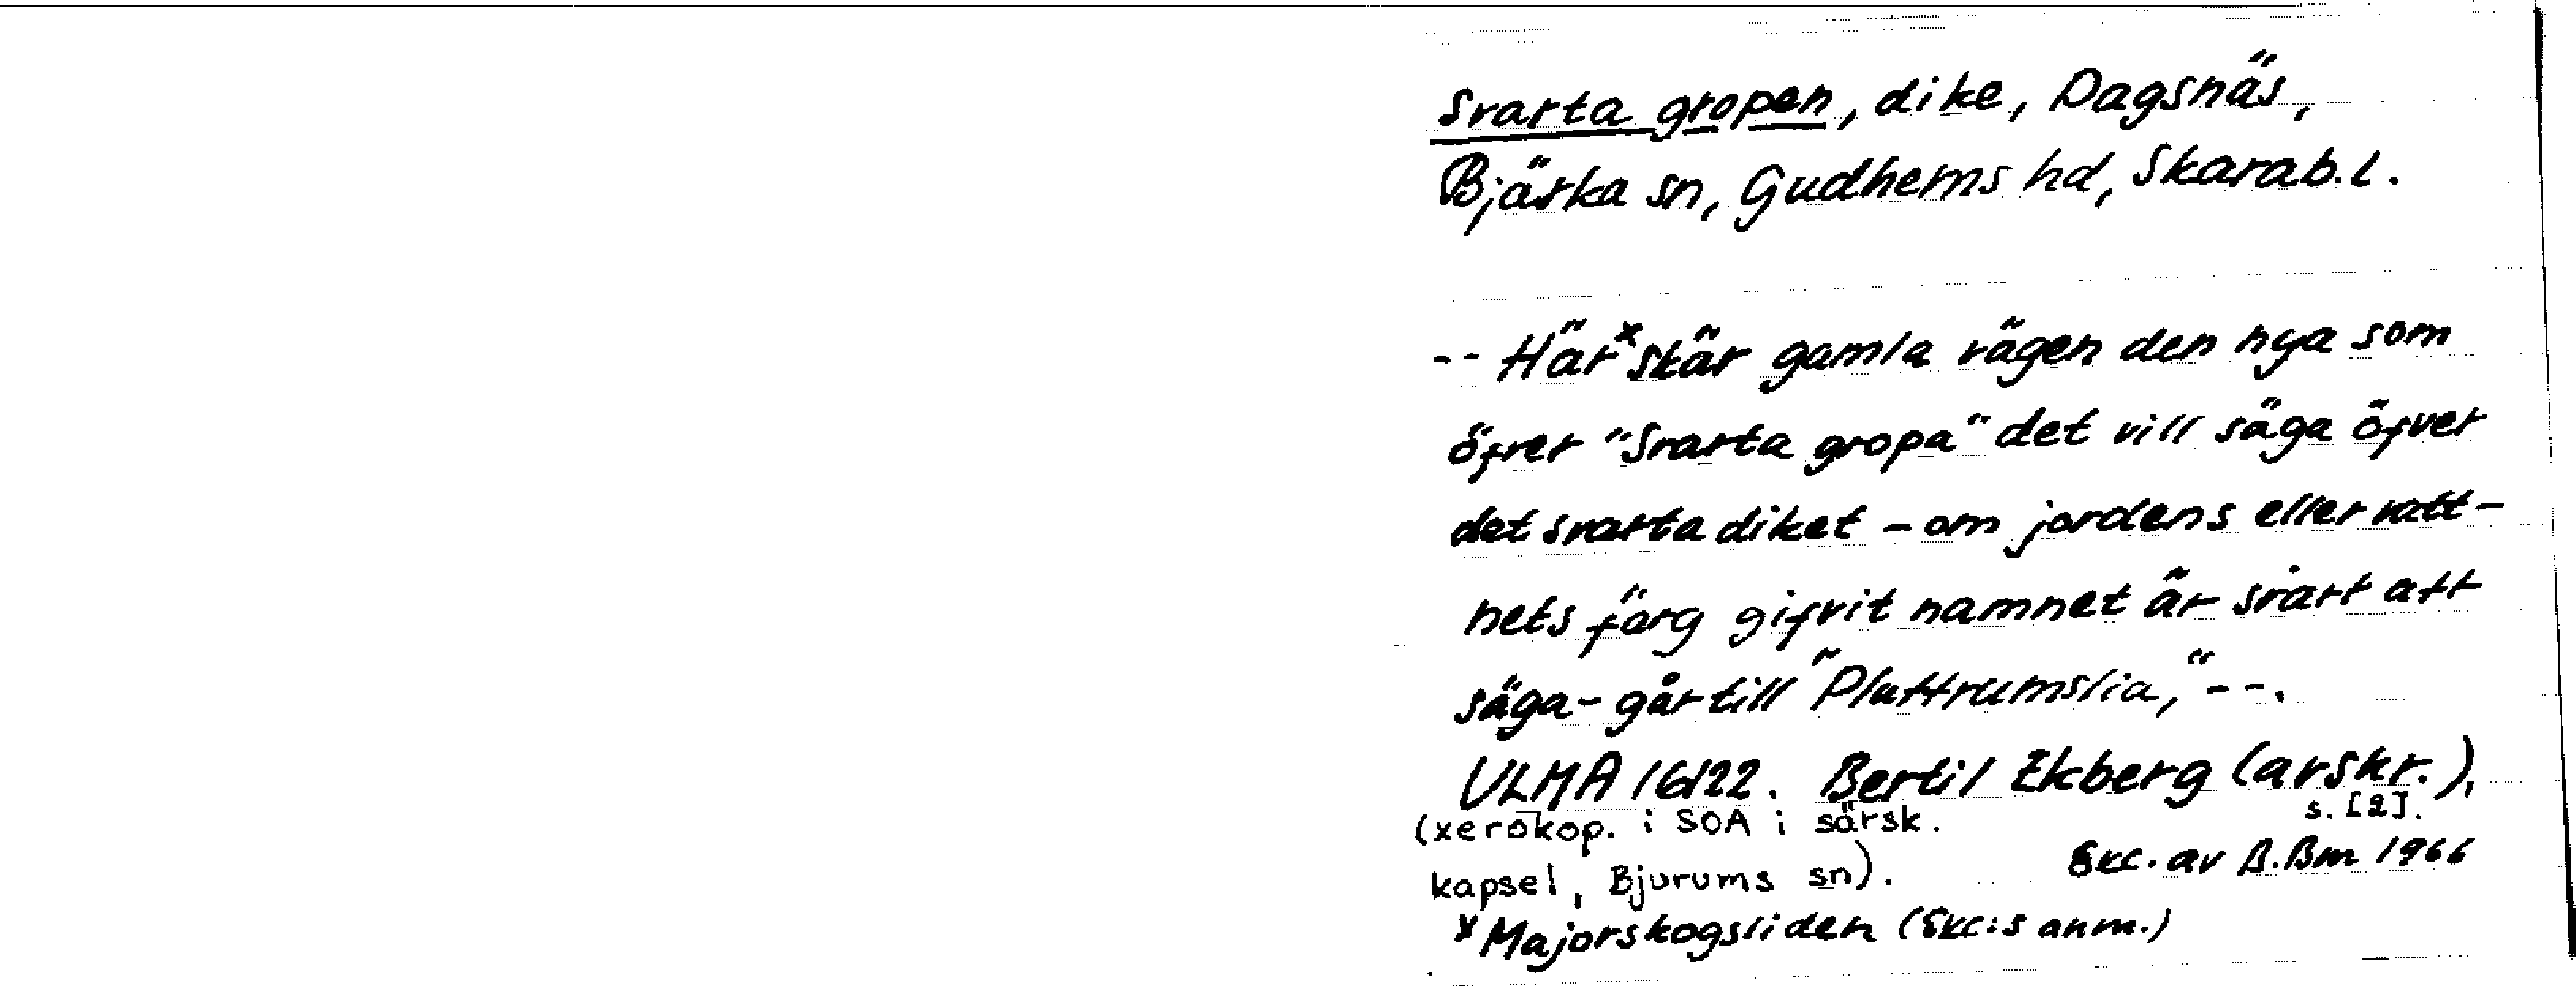 Svarta gropen, dike, Dagsnäs,
Bjärka sn, Gudhems hd, Skarab.l.
-- Här* skär gamla vägen den nya som
öfver "Svarta gropa" det vill säga öfver
det svarta diket - om jordens eller vatt-
nets färg gifvit namnet är svårt att
säga - går till "Pluttrumslia," --.
ULMA 16122. Bertil Ekberg (avskr.),
s. [2].
(xerokop. i SOA i särsk.
kapsel, Bjurums sn).
Exc. av B.Bm 1966
* Majorskogsliden (Exc:s anm.)